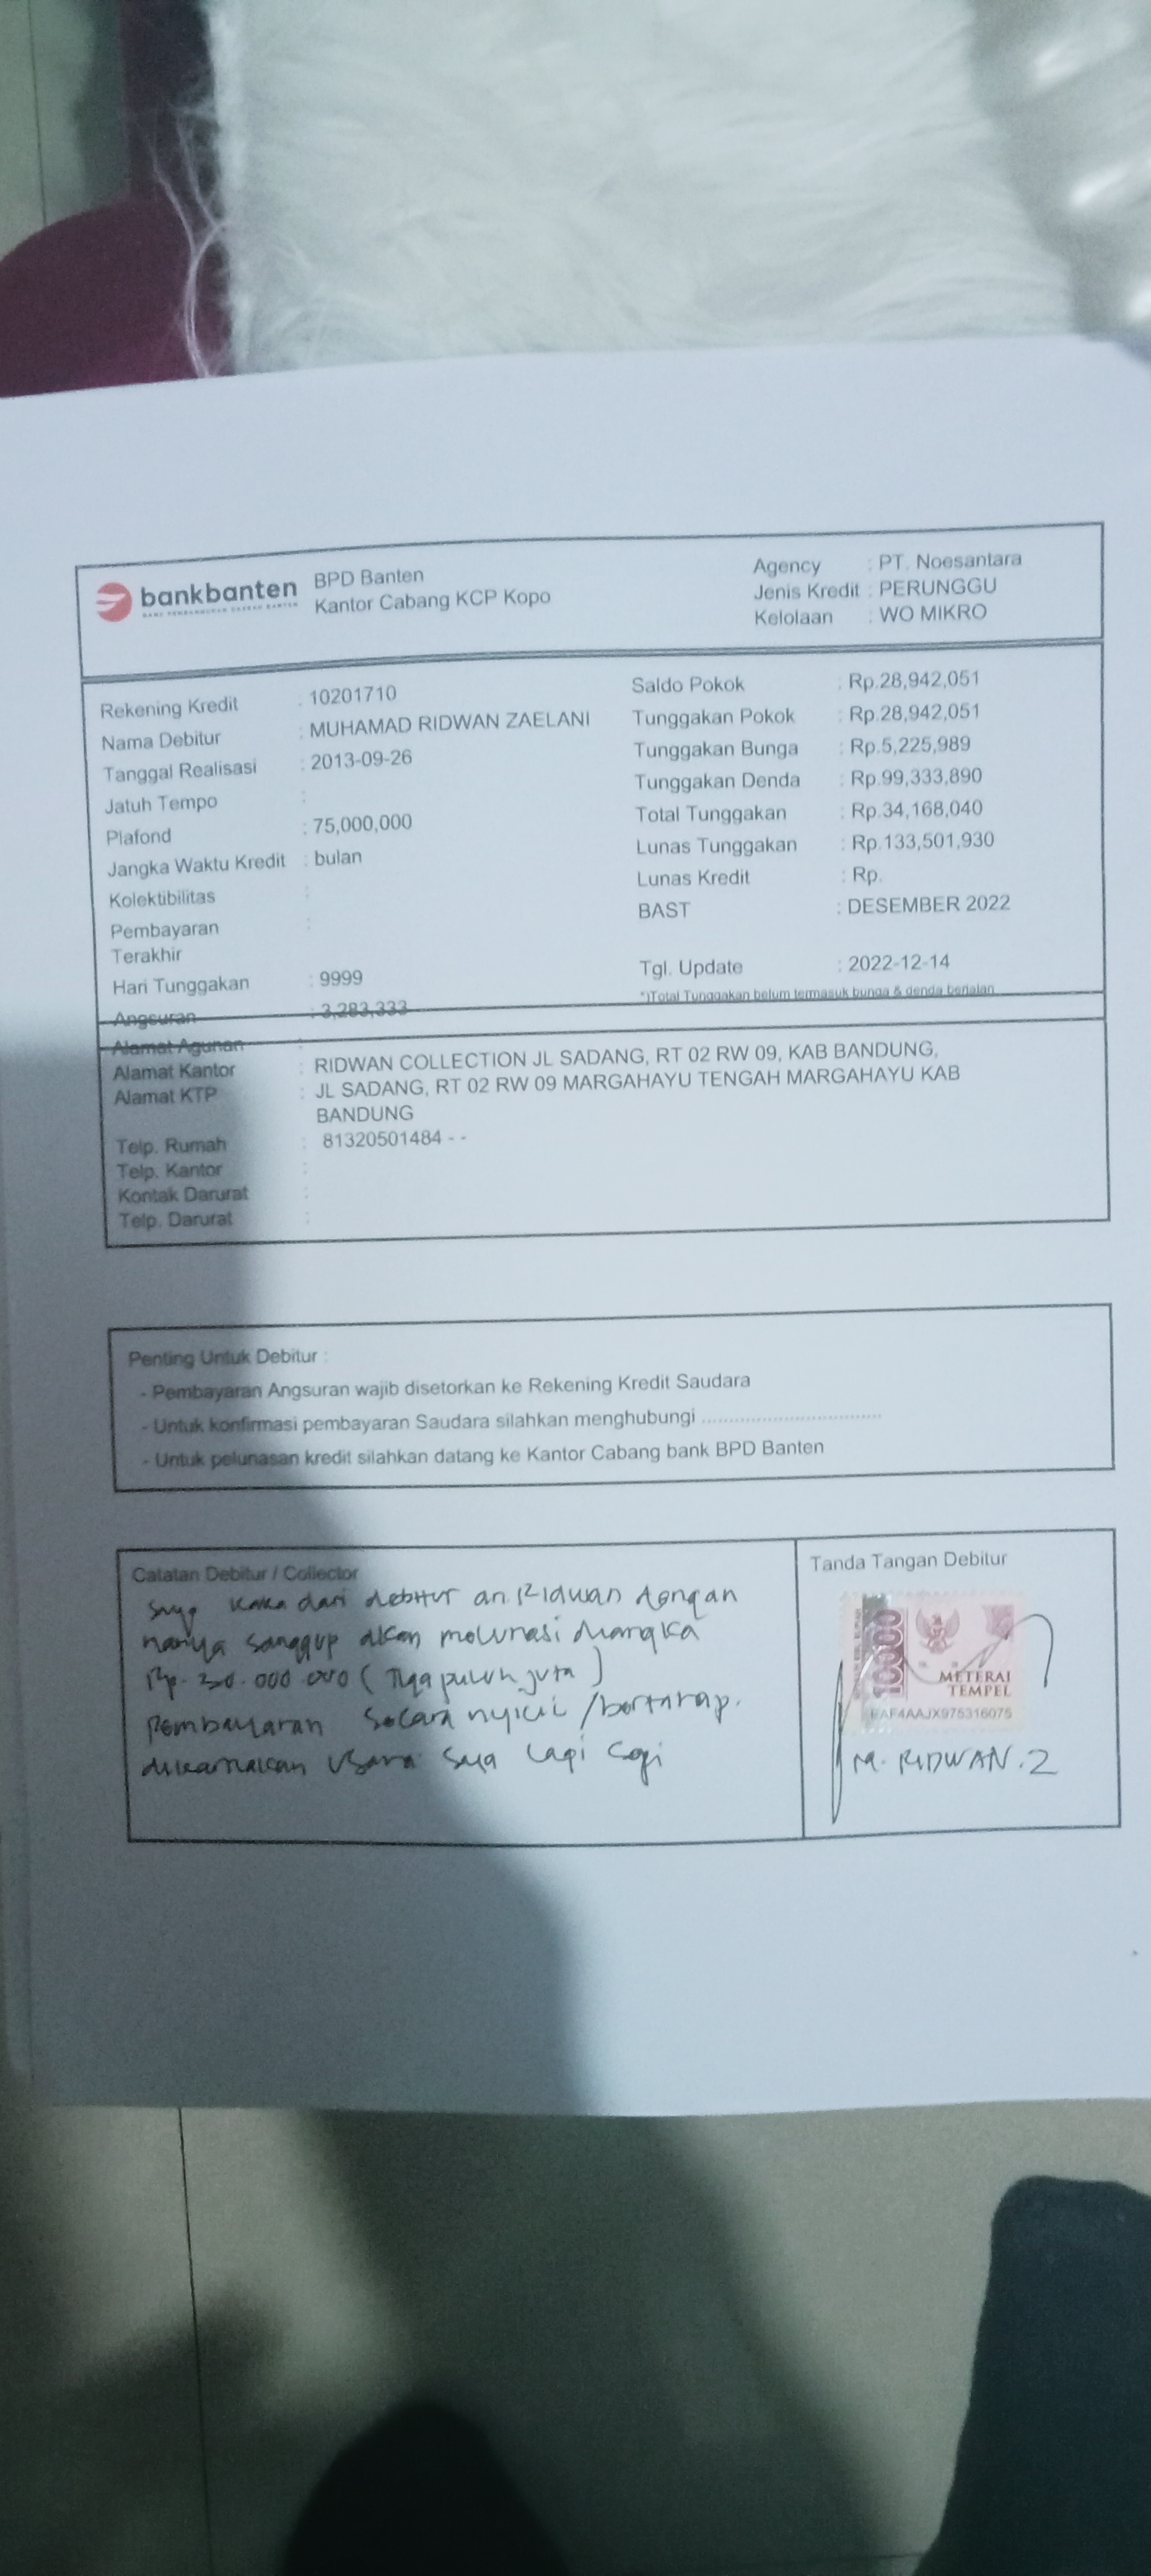 bankbanten
BPD Banten
Kantor Cabang KCP Kopo
Agency : PT. Noesantara
Jenis Kredit : PERUNGGU
Kelolaan : WO MIKRO
Rekening Kredit : 10201710
Nama Debitur : MUHAMAD RIDWAN ZAELANI
Tanggal Realisasi : 2013-09-26
Jatuh Tempo :
Plafond : 75,000,000
Jangka Waktu Kredit : bulan
Kolektibilitas :
Pembayaran :
Terakhir
Hari Tunggakan : 9999
Angsuran : 3,283,333
Saldo Pokok : Rp.28,942,051
Tunggakan Pokok : Rp.28,942,051
Tunggakan Bunga : Rp.5,225,989
Tunggakan Denda : Rp.99,333,890
Total Tunggakan : Rp.34,168,040
Lunas Tunggakan : Rp.133,501,930
Lunas Kredit : Rp.
BAST : DESEMBER 2022
Tgl. Update : 2022-12-14
*)Total Tunggakan belum termasuk bunga & denda berjalan
Alamat Agunan :
Alamat Kantor : RIDWAN COLLECTION JL SADANG, RT 02 RW 09, KAB BANDUNG,
Alamat KTP : JL SADANG, RT 02 RW 09 MARGAHAYU TENGAH MARGAHAYU KAB
BANDUNG
Telp. Rumah : 81320501484 - -
Telp. Kantor :
Kontak Darurat :
Telp. Darurat :
Penting Untuk Debitur :
- Pembayaran Angsuran wajib disetorkan ke Rekening Kredit Saudara
- Untuk konfirmasi pembayaran Saudara silahkan menghubungi ................................
- Untuk pelunasan kredit silahkan datang ke Kantor Cabang bank BPD Banten
Catatan Debitur / Collector
saya kaka dari debitur an. Ridwan dengan
hanya sanggup akan melunasi diangka
Rp. 30.000.000 (Tiga puluh juta)
pembayaran secara nyicil / bertahap.
dikarnakan usaha saya lagi
Tanda Tangan Debitur
10000
METERAI
TEMPEL
AAJX975316075
M. RIDWAN. Z